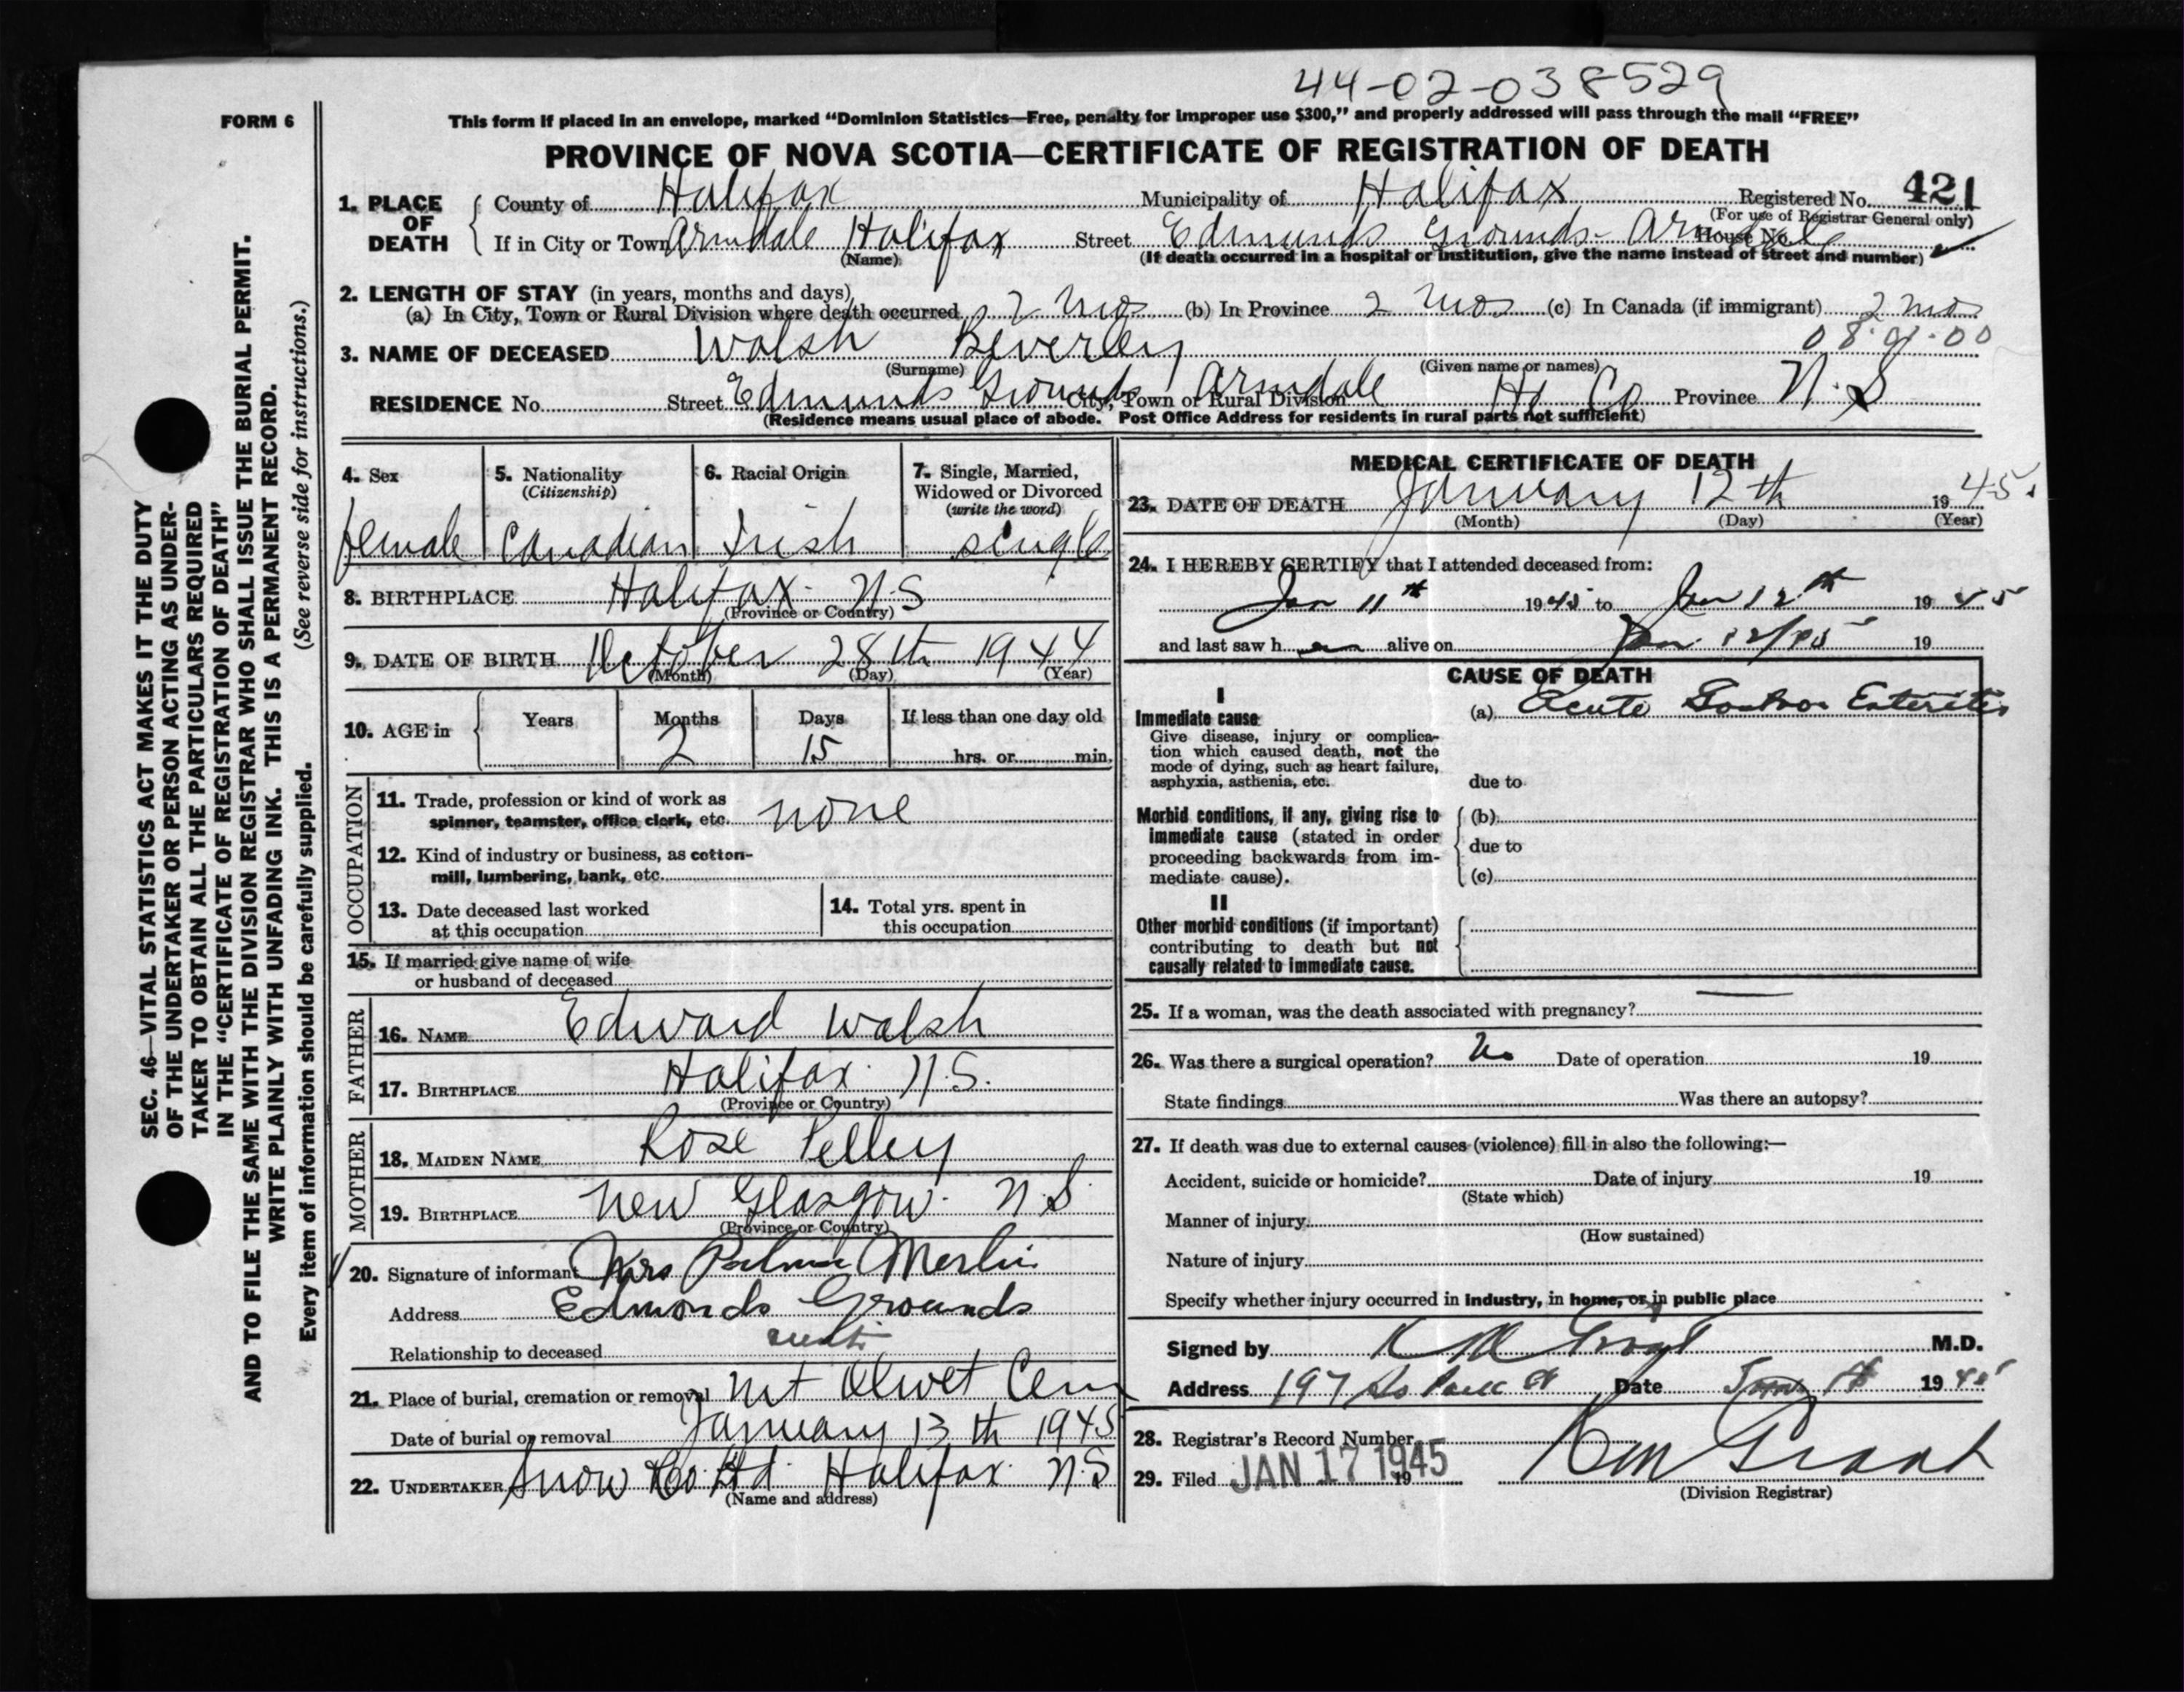 44-02-038529
FORM 6
This form if placed in an envelope, marked “Dominion Statistics—Free, penalty for improper use $300,” and properly addressed will pass through the mail “FREE”
PROVINCE OF NOVA SCOTIA—CERTIFICATE OF REGISTRATION OF DEATH
1. PLACE OF DEATH { County of Halifax Municipality of Halifax Registered No. 421
(For use of Registrar General only)
If in City or Town Armdale Halifax Street Edmunds Grounds - Armdale House No.
(Name) (If death occurred in a hospital or institution, give the name instead of street and number)
2. LENGTH OF STAY (in years, months and days)
(a) In City, Town or Rural Division where death occurred 2 mo (b) In Province 2 mos (c) In Canada (if immigrant) 2 mo
08.01.00
3. NAME OF DECEASED Walsh Beverley
(Surname) (Given name or names)
RESIDENCE No. Street Edmunds Grounds City, Town or Rural Division Armdale Hx Co Province N.S
(Residence means usual place of abode. Post Office Address for residents in rural parts not sufficient)
SEC. 46—VITAL STATISTICS ACT MAKES IT THE DUTY
OF THE UNDERTAKER OR PERSON ACTING AS UNDER-
TAKER TO OBTAIN ALL THE PARTICULARS REQUIRED
IN THE “CERTIFICATE OF REGISTRATION OF DEATH”
AND TO FILE THE SAME WITH THE DIVISION REGISTRAR WHO SHALL ISSUE THE BURIAL PERMIT.
WRITE PLAINLY WITH UNFADING INK. THIS IS A PERMANENT RECORD.
Every item of information should be carefully supplied. (See reverse side for instructions.)
4. Sex female
5. Nationality (Citizenship) Canadian
6. Racial Origin Irish
7. Single, Married, Widowed or Divorced (write the word) single
8. BIRTHPLACE Halifax - N.S
(Province or Country)
9. DATE OF BIRTH October 28th 1944
(Month) (Day) (Year)
10. AGE in { Years Months 2 Days 15 If less than one day old hrs. or min.
OCCUPATION
11. Trade, profession or kind of work as
spinner, teamster, office clerk, etc. none
12. Kind of industry or business, as cotton-
mill, lumbering, bank, etc.
13. Date deceased last worked
at this occupation
14. Total yrs. spent in
this occupation
15. If married give name of wife
or husband of deceased
FATHER
16. NAME Edward Walsh
17. BIRTHPLACE Halifax N.S.
(Province or Country)
MOTHER
18. MAIDEN NAME Rose Pelley
19. BIRTHPLACE New Glasgow - N.S
(Province or Country)
20. Signature of informant Mrs Merlin
Address Edmonds Grounds
Relationship to deceased aunt
21. Place of burial, cremation or removal Mt Olivet Cem
Date of burial or removal January 13th 1945
22. UNDERTAKER Snow Co Ltd Halifax N.S
(Name and address)
MEDICAL CERTIFICATE OF DEATH
23. DATE OF DEATH January 12th 1945.
(Month) (Day) (Year)
24. I HEREBY CERTIFY that I attended deceased from:
Jan 11th 1945 to Jan 12th 1945
and last saw h er alive on Jan 12/45 19
CAUSE OF DEATH
I
Immediate cause (a) Acute Gastro Enteritis
Give disease, injury or complica-
tion which caused death, not the
mode of dying, such as heart failure,
asphyxia, asthenia, etc. due to
Morbid conditions, if any, giving rise to (b)
immediate cause (stated in order due to
proceeding backwards from im-
mediate cause). (c)
II
Other morbid conditions (if important)
contributing to death but not
causally related to immediate cause.
25. If a woman, was the death associated with pregnancy? —
26. Was there a surgical operation? No Date of operation 19
State findings Was there an autopsy?
27. If death was due to external causes (violence) fill in also the following:—
Accident, suicide or homicide? Date of injury 19
(State which)
Manner of injury
(How sustained)
Nature of injury
Specify whether injury occurred in industry, in home, or in public place
Signed by K M Grant M.D.
Address 197 So Park St Date Jan 1945
28. Registrar's Record Number
29. Filed JAN 17 1945 19 KM Grant
(Division Registrar)